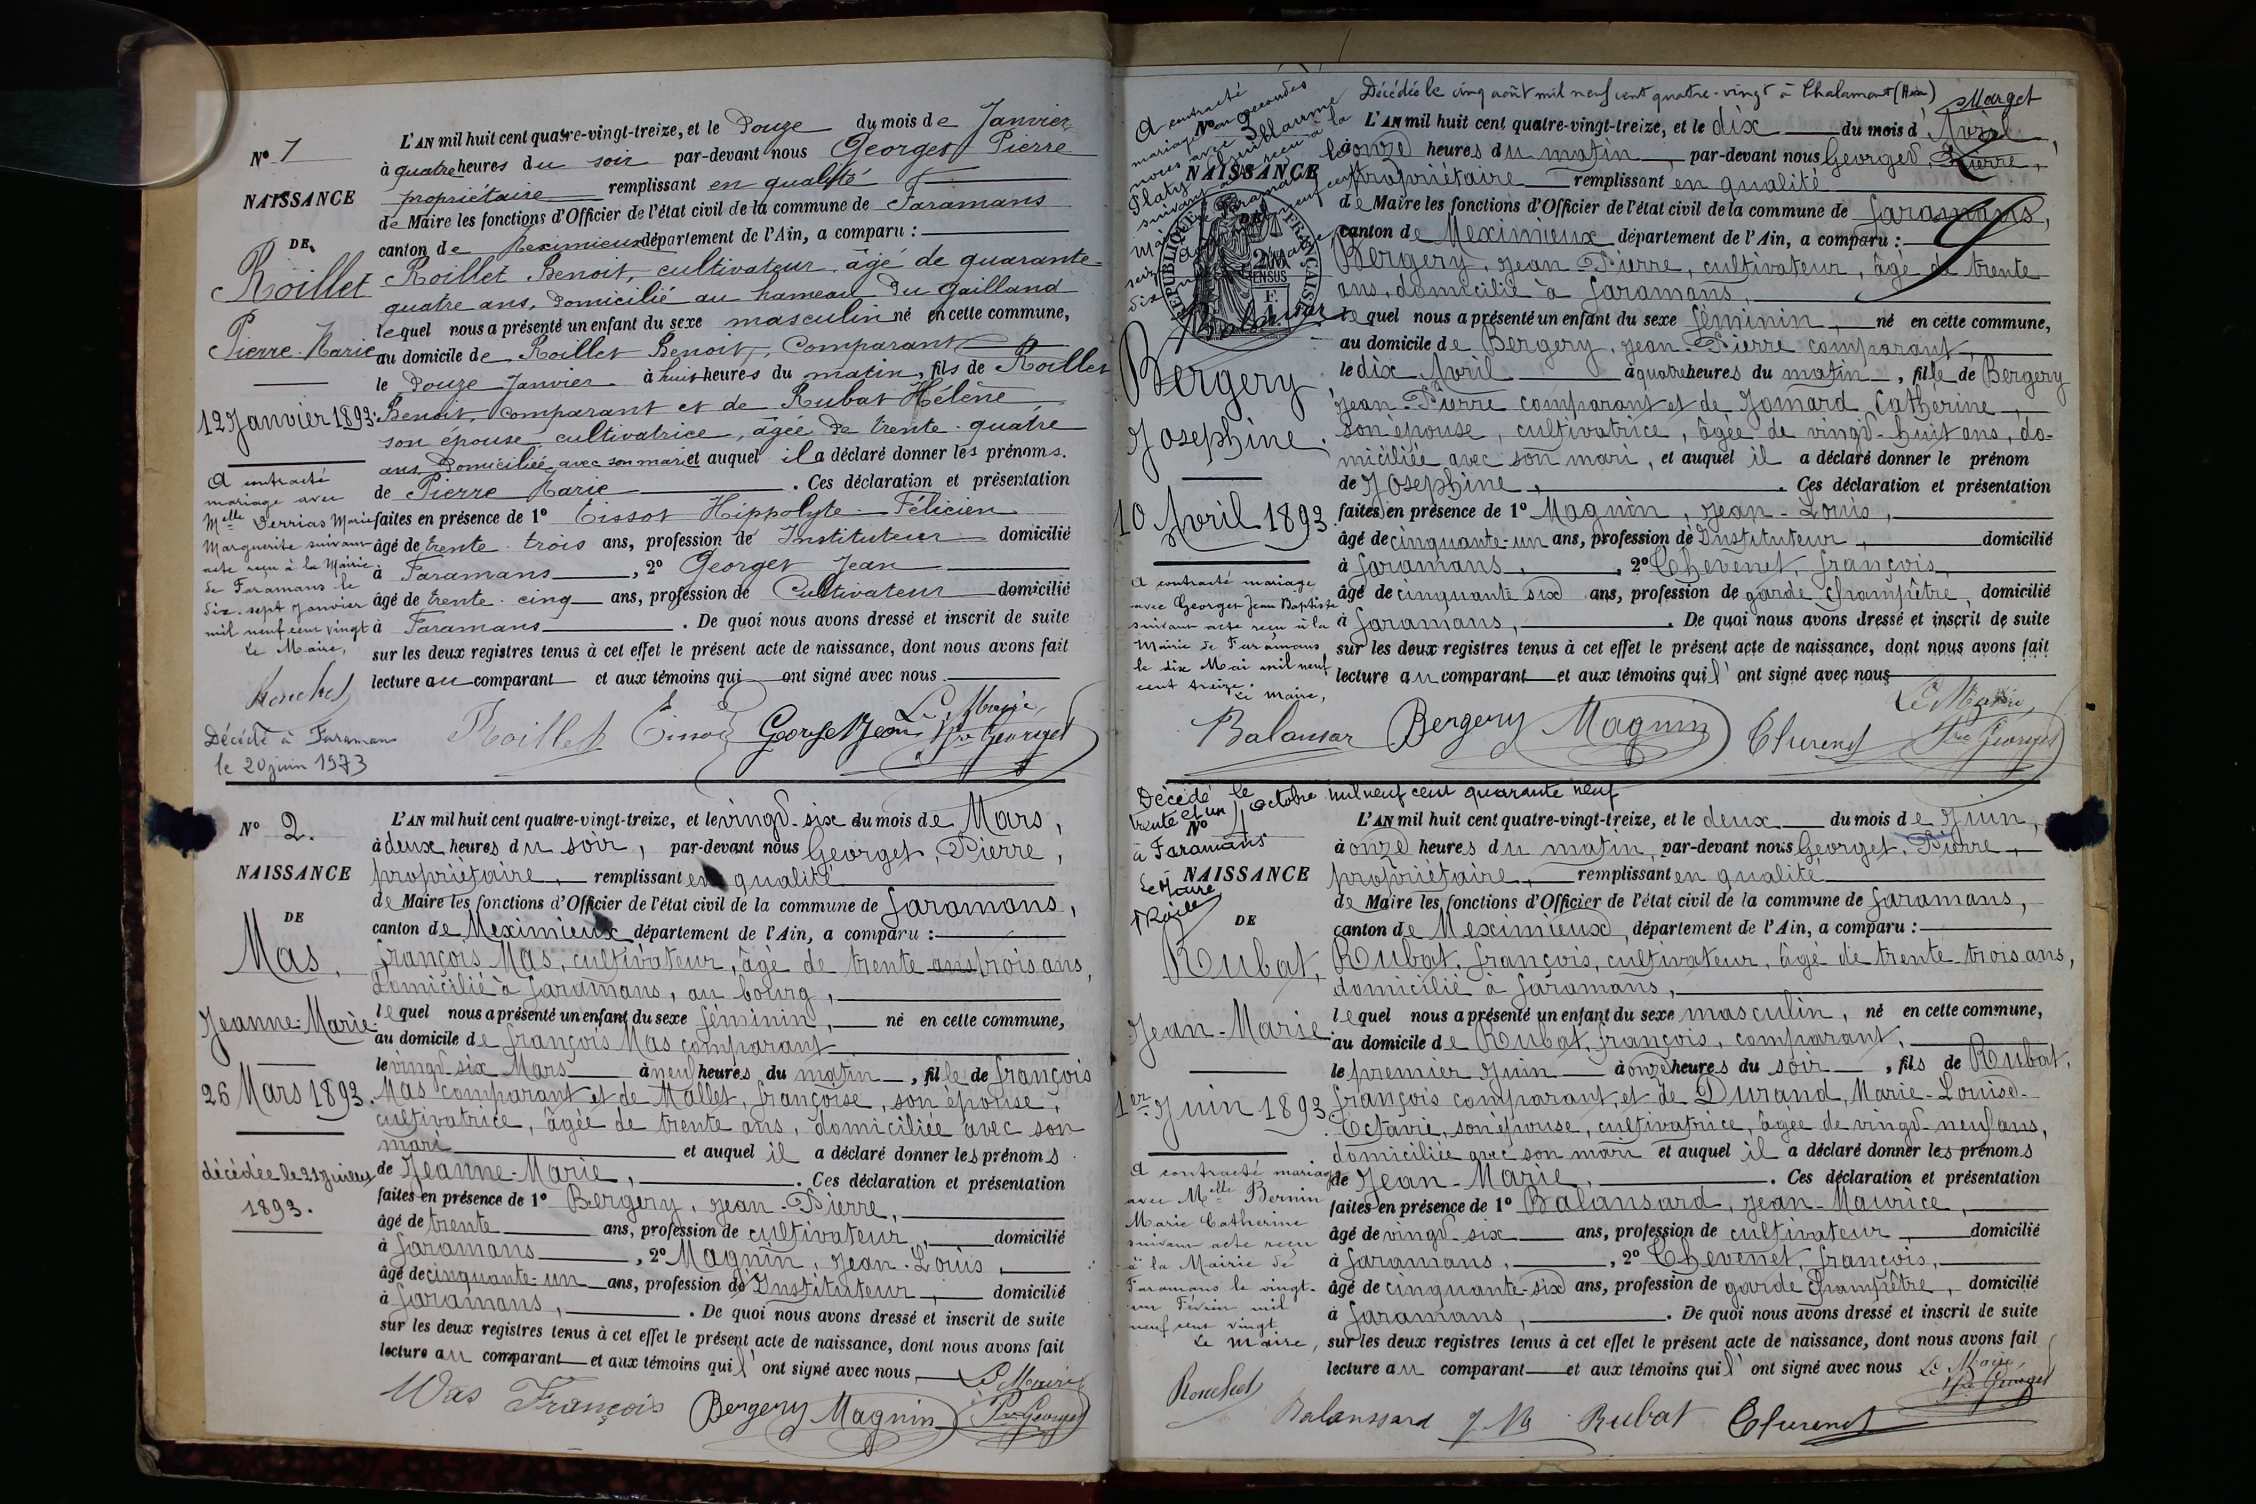 N° 1
NAISSANCE
DE
Roillet
Pierre-Marie
12 Janvier 1893.
A contracté
mariage avec
Melle Verrias Marie
Marguerite suivant
acte reçu à la Mairie
de Faramans le
dix-sept Janvier
mil neuf cent vingt
Le Maire,
Décédé à Faramans
le 20 juin 1973
L'AN mil huit cent quatre-vingt-treize, et le Douze du mois de Janvier
à quatre heures du soir par-devant nous Georget Pierre
propriétaire remplissant en qualité
de Maire les fonctions d'Officier de l'état civil de la commune de Faramans
canton de Meximieux département de l'Ain, a comparu :
Roillet Benoit, cultivateur, âgé de quarante-
quatre ans, domicilié au hameau du Gailland
lequel nous a présenté un enfant du sexe masculin né en cette commune,
au domicile de Roillet Benoit, Comparant
le Douze Janvier à huit heures du matin, fils de Roillet
Benoit, comparant et de Rubat Hélène
son épouse, cultivatrice, âgée de trente-quatre
ans, Domiciliée avec son mari et auquel il a déclaré donner les prénoms
de Pierre Marie . Ces déclaration et présentation
faites en présence de 1° Tissot Hippolyte-Félicien
âgé de trente-trois ans, profession de Instituteur domicilié
à Faramans , 2° Georget Jean
âgé de trente-cinq ans, profession de Cultivateur domicilié
à Faramans . De quoi nous avons dressé et inscrit de suite
sur les deux registres tenus à cet effet le présent acte de naissance, dont nous avons fait
lecture au comparant et aux témoins qui ont signé avec nous.
Le Maire,
Roillet Tissot Georget Jean Pre Georget
N° 2.
NAISSANCE
DE
Mas,
Jeanne-Marie
26 Mars 1893.
décédée le 21 Juillet
1893.
L'AN mil huit cent quatre-vingt-treize, et le vingt-six du mois de Mars,
à deux heures du soir, par-devant nous Georget, Pierre,
propriétaire, remplissant en qualité
de Maire les fonctions d'Officier de l'état civil de la commune de Faramans,
canton de Meximieux département de l'Ain, a comparu :
François Mas, cultivateur, âgé de trente ans trois ans,
domicilié à Faramans, au bourg,
lequel nous a présenté un enfant du sexe féminin, né en cette commune,
au domicile de François Mas comparant
le vingt-six Mars à neuf heures du matin, fille de François
Mas comparant et de Mallet, Françoise, son épouse,
cultivatrice, âgée de trente ans, domiciliée avec son
mari et auquel il a déclaré donner les prénoms
de Jeanne-Marie, . Ces déclaration et présentation
faites en présence de 1° Bergery, Jean-Pierre,
âgé de trente ans, profession de cultivateur, domicilié
à Faramans , 2° Magnin, Jean-Louis,
âgé de cinquante-un ans, profession d'Instituteur, domicilié
à Faramans, . De quoi nous avons dressé et inscrit de suite
sur les deux registres tenus à cet effet le présent acte de naissance, dont nous avons fait
lecture au comparant et aux témoins qui ont signé avec nous,
Le Maire
Mas François Bergery Magnin Pre Georget
Décédée le cinq août mil neuf cent quatre-vingt à Chalamont (Ain)
A contracté
mariage en secondes
noces avec Guillaume
N° 3
NAISSANCE
DE
RÉPUBLIQUE FRANÇAISE
Bergery
Josephine.
10 Avril 1893.
A contracté mariage
avec Georget Jean Baptiste
suivant acte reçu à la
Mairie de Faramans
le dix Mai mil neuf
cent treize.
Le Maire,
Balansar
L'AN mil huit cent quatre-vingt-treize, et le dix du mois d'Avril
à onze heures du matin, par-devant nous Georget, Pierre,
propriétaire remplissant en qualité
de Maire les fonctions d'Officier de l'état civil de la commune de Faramans,
canton de Meximieux département de l'Ain, a comparu :
Bergery, Jean-Pierre, cultivateur, âgé de trente
ans, domicilié à Faramans,
lequel nous a présenté un enfant du sexe féminin, né en cette commune,
au domicile de Bergery, Jean-Pierre comparant,
le dix Avril à quatre heures du matin, fille de Bergery
Jean-Pierre comparant et de Jomard Catherine,
son épouse, cultivatrice, âgée de vingt-huit ans, do-
miciliée avec son mari, et auquel il a déclaré donner le prénom
de Josephine, . Ces déclaration et présentation
faites en présence de 1° Magnin, Jean-Louis,
âgé de cinquante-un ans, profession d'Instituteur, domicilié
à Faramans, , 2° Chevenet, François,
âgé de cinquante six ans, profession de garde Champêtre, domicilié
à Faramans, . De quoi nous avons dressé et inscrit de suite
sur les deux registres tenus à cet effet le présent acte de naissance, dont nous avons fait
lecture au comparant et aux témoins qui ont signé avec nous
Le Maire,
Bergery Magnin Pre Georget
Décédé le
trente et un Octobre mil neuf cent quarante neuf
à Faramans
Le Maire
N° 4
NAISSANCE
DE
Rubat,
Jean-Marie
1er Juin 1893.
A contracté mariage
avec Melle Bernin
Marie Catherine
suivant acte reçu
à la Mairie de
Faramans le vingt-
un Février mil
neuf cent vingt
Le Maire,
L'AN mil huit cent quatre-vingt-treize, et le deux du mois de Juin,
à onze heures du matin, par-devant nous Georget, Pierre,
propriétaire, remplissant en qualité
de Maire les fonctions d'Officier de l'état civil de la commune de Faramans,
canton de Meximieux, département de l'Ain, a comparu :
Rubat, François, cultivateur, âgé de trente-trois ans,
domicilié à Faramans,
lequel nous a présenté un enfant du sexe masculin, né en cette commune,
au domicile de Rubat, François, comparant,
le premier Juin à onze heures du soir, fils de Rubat,
François comparant, et de Durand, Marie-Louise-
Octavie, son épouse, cultivatrice, âgée de vingt-neuf ans,
domiciliée avec son mari et auquel il a déclaré donner les prénoms
de Jean-Marie, . Ces déclaration et présentation
faites en présence de 1° Balansard, Jean-Maurice,
âgé de vingt-six ans, profession de cultivateur, domicilié
à Faramans, , 2° Chevenet, François,
âgé de cinquante-six ans, profession de garde Champêtre, domicilié
à Faramans, . De quoi nous avons dressé et inscrit de suite
sur les deux registres tenus à cet effet le présent acte de naissance, dont nous avons fait
lecture au comparant et aux témoins qui ont signé avec nous
Le Maire,
Pre Georget
Balanssard J M Rubat